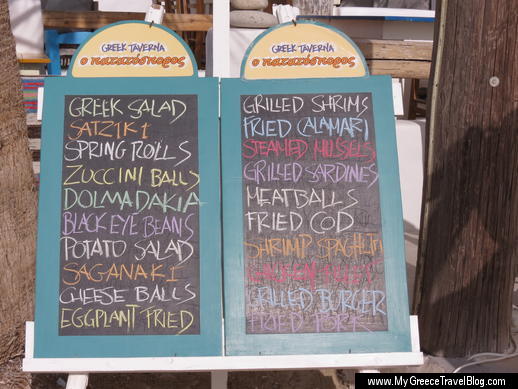 GREEK TAVERNA
GREEK SALAD
SATZIKI
SPRING ROLLS
ZUCCINI BALLS
DOLMADAKIA
BLACK EYE BEANS
POTATO SALAD
SAGANAKI
CHEESE BALLS
EGGPLANT FRIED
GREEK TAVERNA
GRILLED SHRIMS
FRIED CALAMARI
STEAMED MUSSELS
GRILLED SARDINES
MEATBALLS
FRIED COD
SHRIMP
GRILLED BURGER
FRIED PORK
www.MyGreeceTravelBlog.com